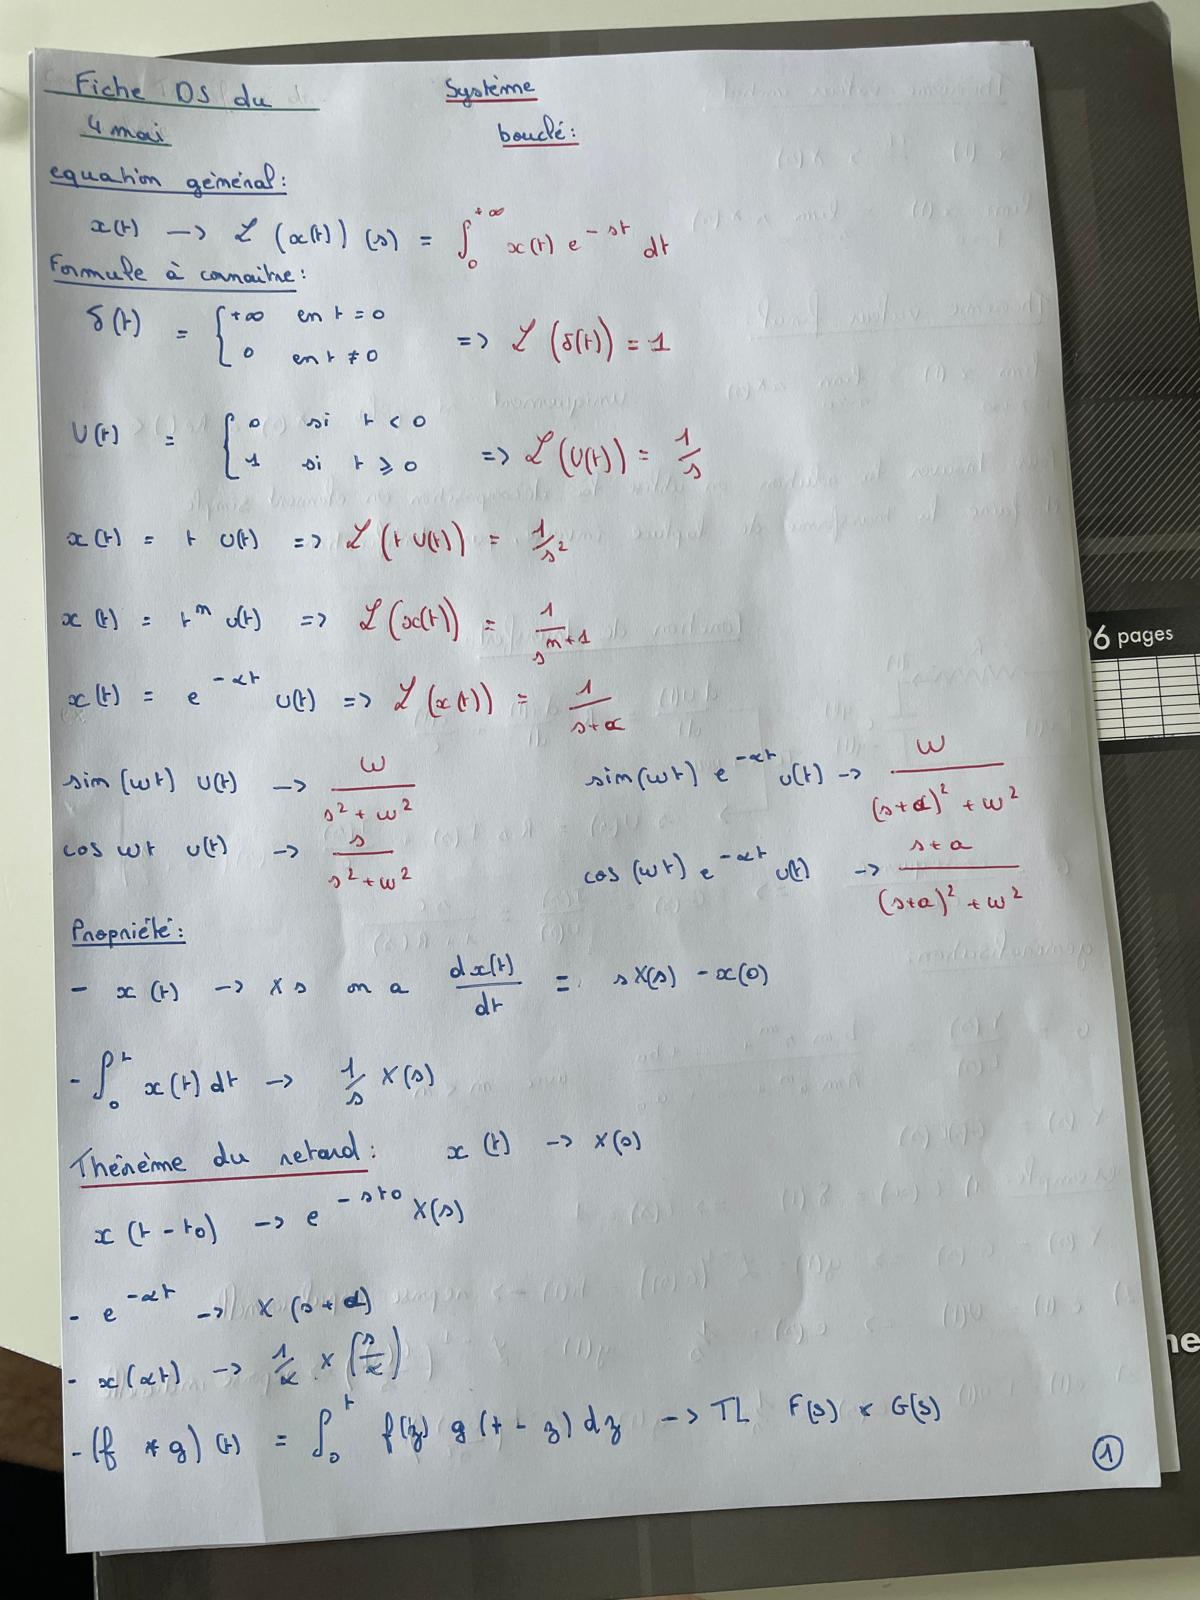 Fiche DS du
4 mai
Système
bouclé:
equation géneral:
x(t) —> ℒ (x(t)) (s) = ∫₀^+∞ x(t) e^-st dt
Formule à connaître:
δ(t) = { +∞ en t = 0
0 en t ≠ 0 => ℒ (δ(t)) = 1
U(t) = { 0 si t < 0
1 si t ⩾ 0 => ℒ (U(t)) = 1/s
x(t) = t U(t) => ℒ (t U(t)) = 1/s²
x(t) = t^n U(t) => ℒ (x(t)) = 1/s^n+1
x(t) = e^-αt U(t) => ℒ (x(t)) = 1/s+α
sin(ωt) U(t) —> ω/s² + ω²
sin(ωt) e^-αt U(t) —> ω/(s+α)² + ω²
cos ωt U(t) —> s/s² + ω²
cos (ωt) e^-αt U(t) —> s+a/(s+a)² + ω²
Propriété:
- x(t) —> X s on a dx(t)/dt = sX(s) - x(0)
- ∫₀^t x(t) dt —> 1/s X(s)
Thérème du retard: x (t) —> X(s)
x (t - t0) —> e^-st0 X(s)
- e^-αt —> X (s + α)
- x(αt) —> 1/α X (s/α)
- (f * g) (t) = ∫₀^t f(z) g (t - z) dz —> TL F(s) × G(s)
1
6 pages
ne